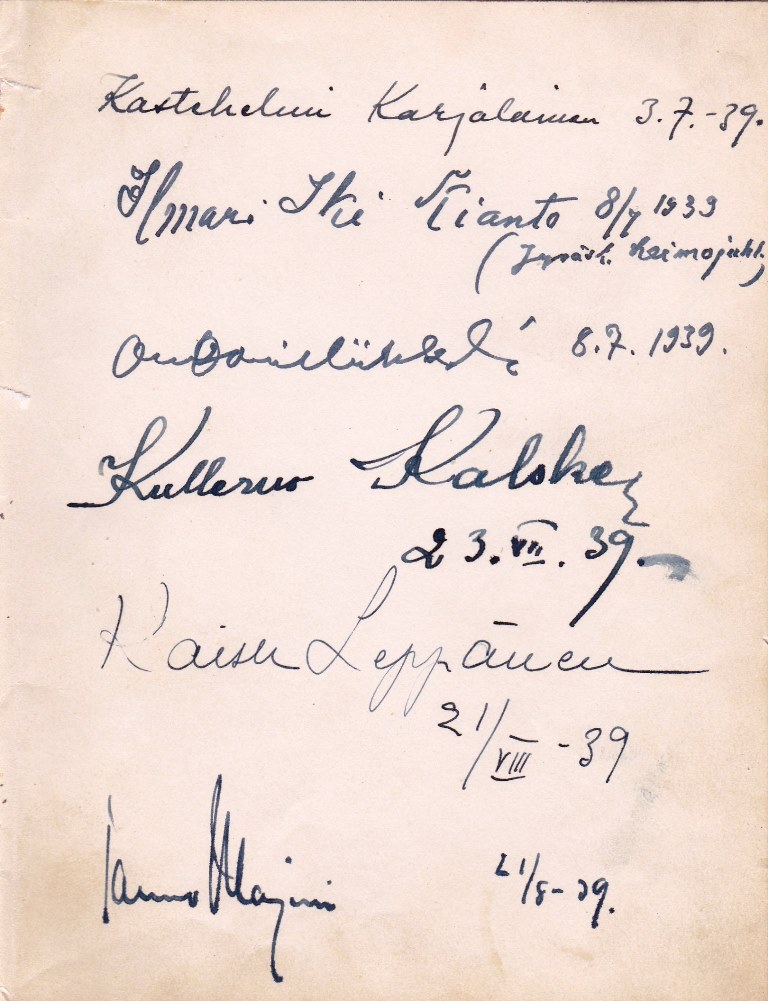 Kastehelmi Karjalainen 3.7.-39.
Ilmari Iki Kianto 8/7 1939
(Jyväsk. heimojuhl.)
8.7.1939.
Kullervo Kalske
23.VII.39.
Kaisu Leppänen
21/VIII -39
21/8-39.